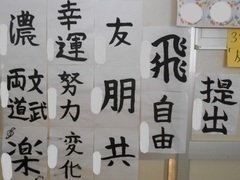 提出
飛
自由
友
朋
共
幸運
努力
変化
濃
文武
両道
楽